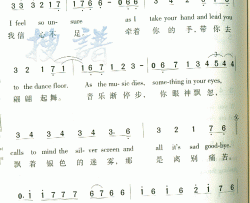 3 3 3 2 1 7 1 7 6 6 - 0 6 6
I feel so un-sure as I take your hand and lead you
我信心不足 牵着你的手,带你去
3 3 3 2 1 7 1 1 6 7 1 2
to the dance floor. As the mu-sic dies, some-thing in your eyes,
翩翩起舞。 音乐渐停步, 你眼神飘忽,
3 4 3 4 3 4 3 6 3 2 1 7 6
calls to mind the sil-ver screen and all it's sad good-bye.
飘着银色的迷雾, 都是离别痛苦.
0 1 1 7 7 7 6 7 6 6 1 1 6 2 1 7 6